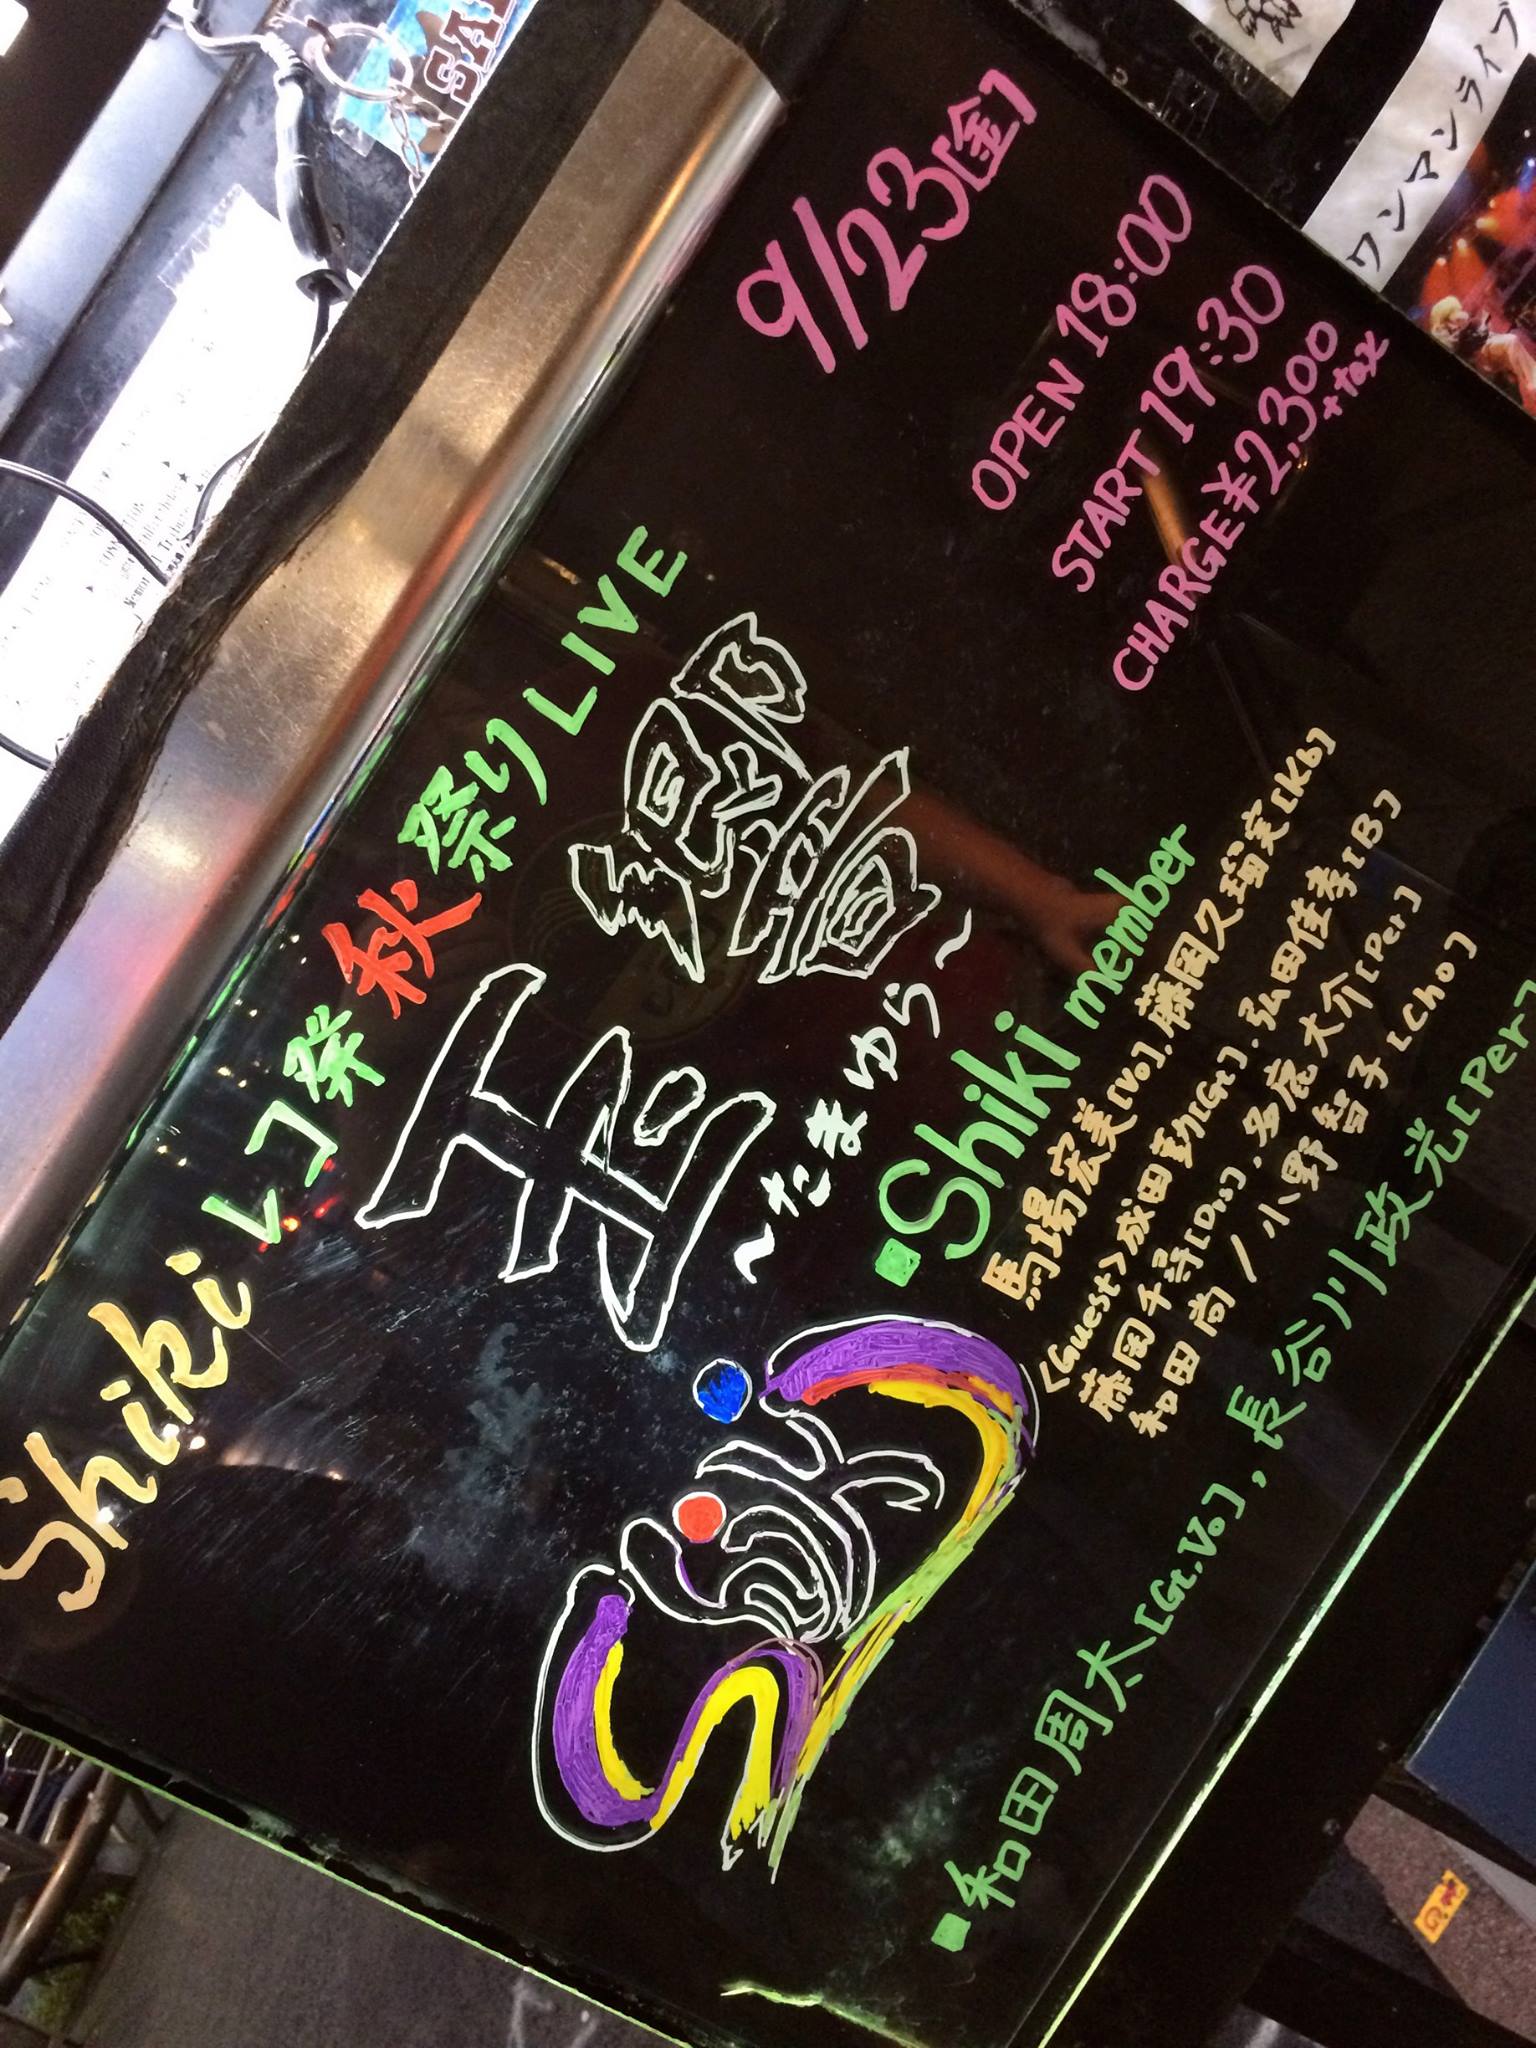 9/23[金]
OPEN 18:00
START 19:30
CHARGE ¥2,300
+tax
Shiki レコ発 秋祭り LIVE
玉響
~たまゆら~
■Shiki member
馬場宏美[Vo]、藤岡久瑠実[Kb]
<Guest>成田勤[Gt]、弘田佳孝[B]
藤岡千尋[Ds]、多鹿大介[Per]
和田尚/小野智子[Cho]
■和田周太[Gt.Vo]、長谷川政光[Per]
ワンマンライブ